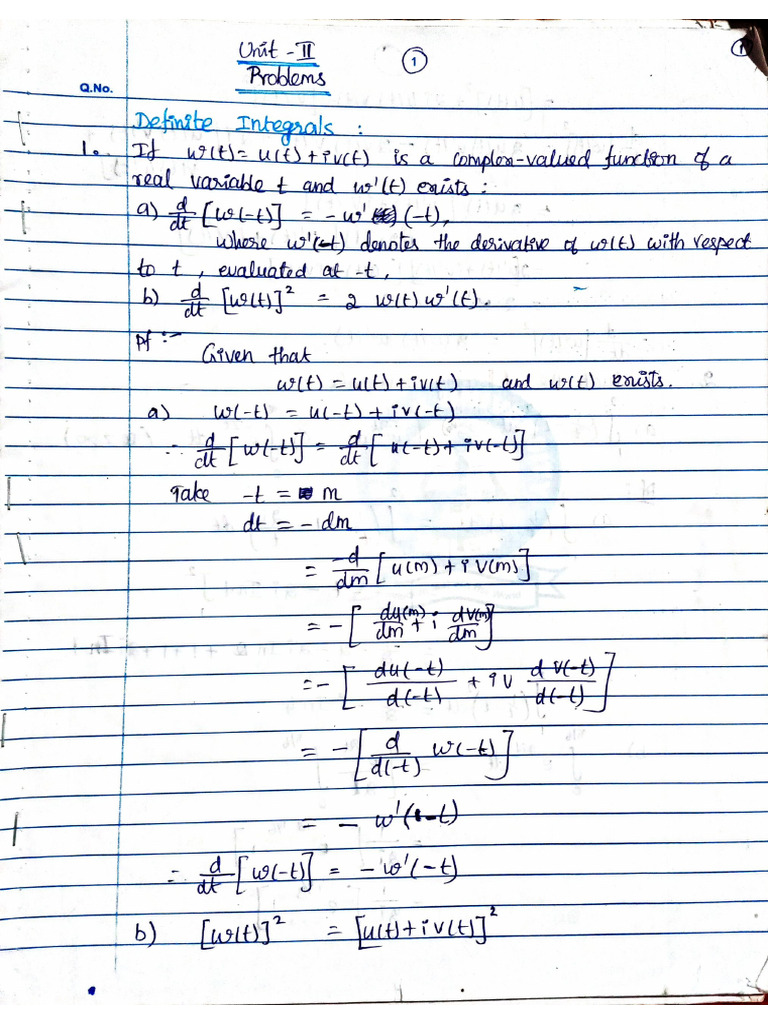 Unit - II
①
1
Problems
Q.No.
Definite Integrals :
1. If w(t) = u(t) + iv(t) is a complex-valued function of a
real variable t and w'(t) exists :
a) d/dt [w(-t)] = - w' (-t),
where w'(-t) denotes the derivative of w(t) with respect
to t , evaluated at -t ,
b) d/dt [w(t)]² = 2 w(t) w'(t).
Pf :-
Given that
w(t) = u(t) + iv(t) and w(t) exists.
a) w(-t) = u(-t) + iv(-t)
∴ d/dt [w(-t)] = d/dt [u(-t) + iv(-t)]
Take -t = m
dt = - dm
= -d/dm [u(m) + i v(m)]
= - [du(m)/dm + i dv(m)/dm]
= - [du(-t)/d(-t) + iv d v(-t)/d(-t)]
= - [d/d(-t) w(-t)]
= - w'(-t)
∴ d/dt [w(-t)] = - w'(-t)
b) [w(t)]² = [u(t) + i v(t)]²